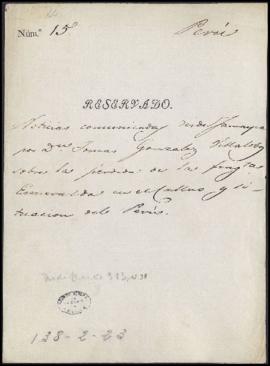 Núm.º 15
Perú
RESERVADO.
Noticias comunicadas desde Jamayca
por Dn Tomas Gonzalez Villalobos
sobre la pérdida de la fragta
Esmeralda en el Callao y si-
tuacion del Perú.
138-2-23